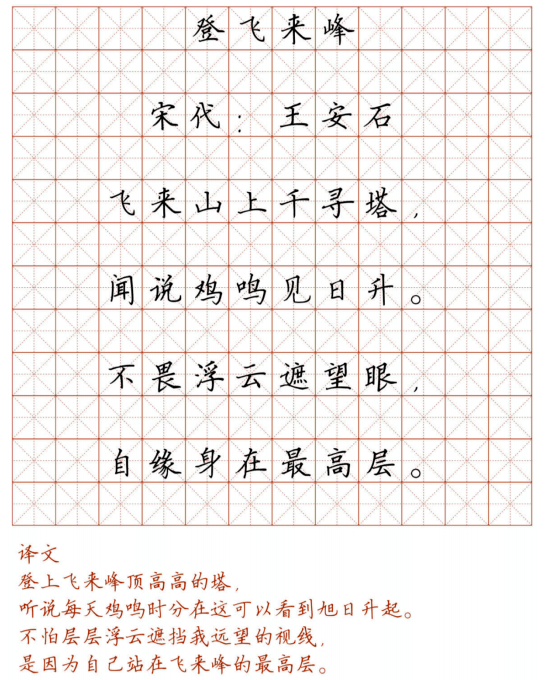 登飞来峰
宋代：王安石
飞来山上千寻塔，
闻说鸡鸣见日升。
不畏浮云遮望眼，
自缘身在最高层。
译文
登上飞来峰顶高高的塔，
听说每天鸡鸣时分在这可以看到旭日升起。
不怕层层浮云遮挡我远望的视线，
是因为自己站在飞来峰的最高层。